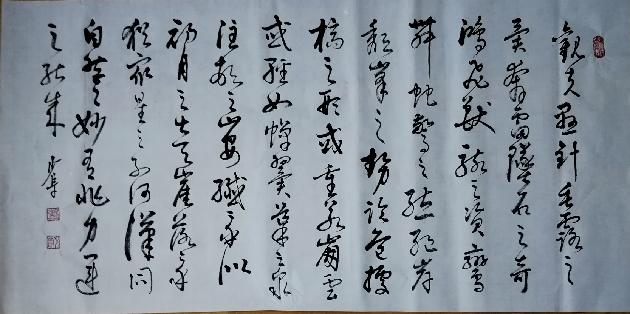 觀夫懸針垂露之
異奔雷墜石之奇
鴻飛獸駭之資鸞
舞蛇驚之態絕岸
頹峯之勢臨危據
槁之形或重若崩雲
或輕如蟬翼導之則泉
注頓之山安纖乎似
初月之出天崖落乎
猶眾星之列河漢同
自然之妙有非力運
之能成